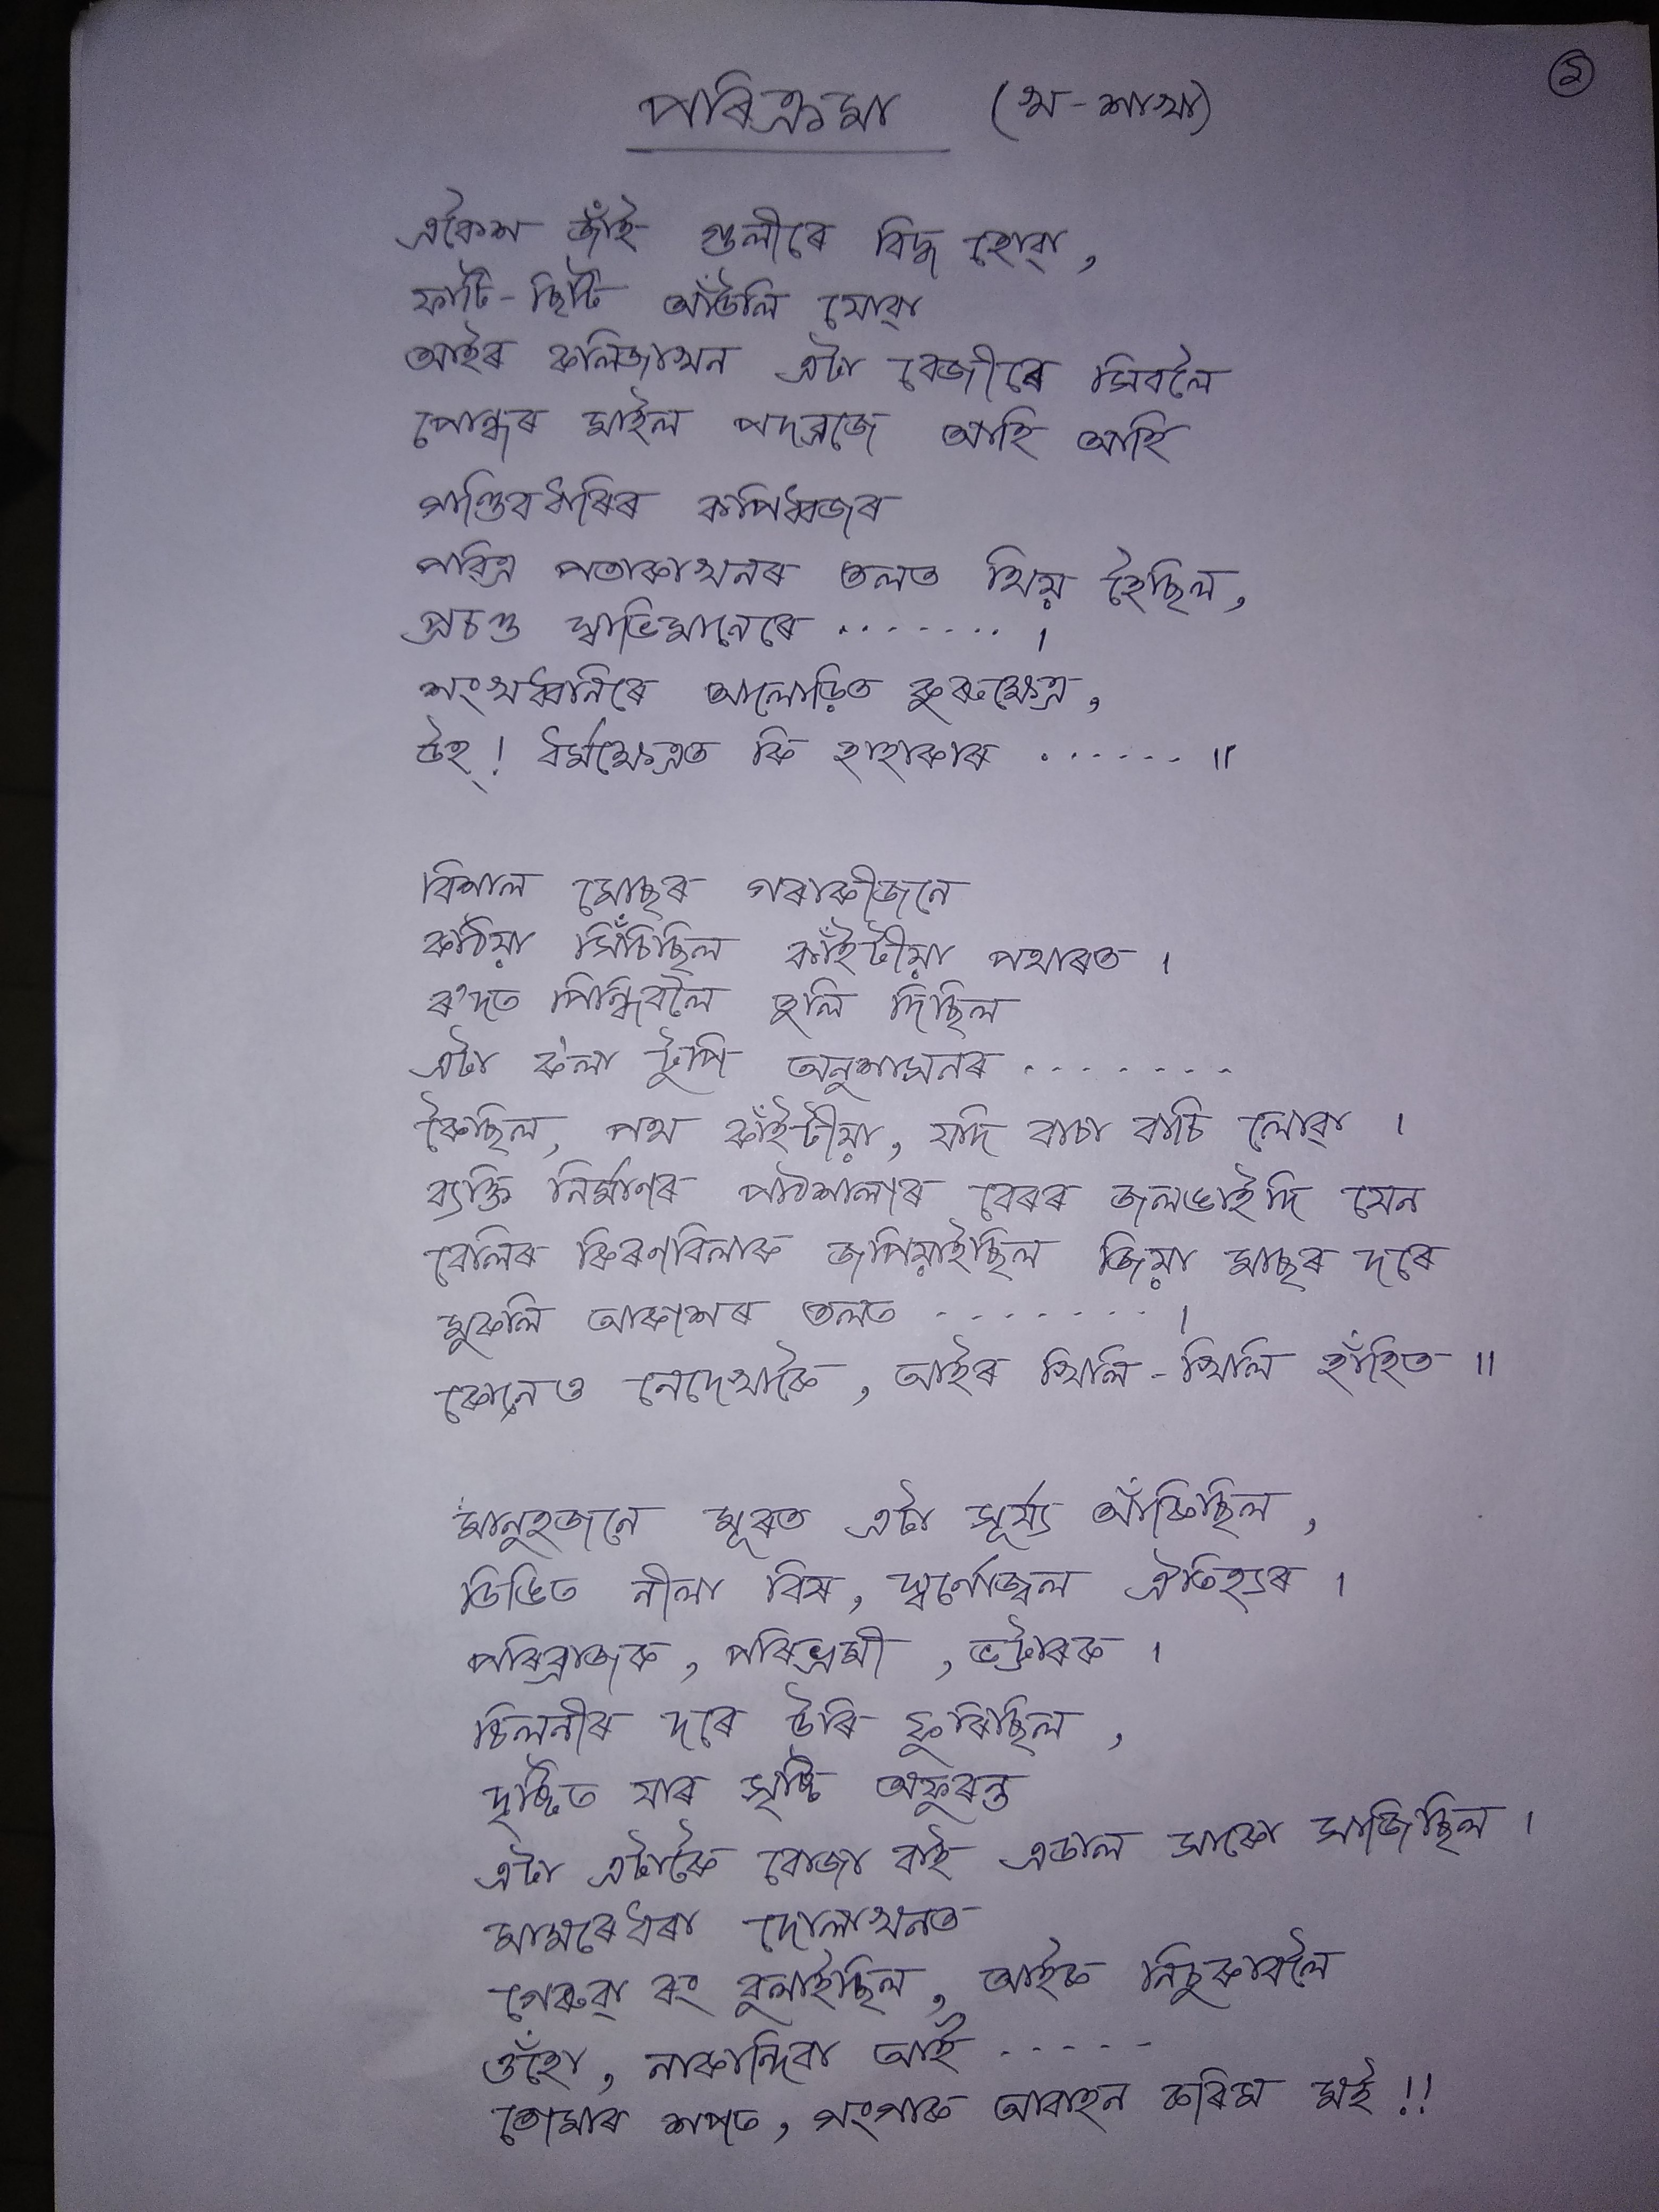 ১
পৰিক্ৰমা (খ-শাখা)
একৈশ জাঁই গুলীৰে বিদ্ধ হোৱা,
ফাটি-ছিটি আঁউলি যোৱা
আইৰ কলিজাখন এটা বেজীৰে সিবলৈ
পোন্ধৰ মাইল পদব্ৰজে আহি আহি
গাণ্ডিবধাৰিৰ কপিধ্বজৰ
পৱিত্ৰ পতাকাখনৰ তলত থিয় হৈছিল,
প্ৰচণ্ড স্বাভিমানেৰে ....... ।
শংখধ্বনিৰে আলোড়িত কুৰুক্ষেত্ৰ,
উহ্! ধৰ্মক্ষেত্ৰত কি হাহাকাৰ ...... ॥
বিশাল মোছৰ গৰাকীজনে
কঠিয়া সিঁচিছিল কাঁইটীয়া পথাৰত ।
ৰ'দত পিন্ধিবলৈ তুলি দিছিল
এটা ক'লা টুপি অনুশাসনৰ .......
কৈছিল, পথ কাঁইটীয়া, যদি বাচা বাচি লোৱা ।
ব্যক্তি নিৰ্মাণৰ পাঠশালাৰ বেৰৰ জলঙাইদি যেন
বেলিৰ কিৰণবিলাক জপিয়াইছিল জিয়া মাছৰ দৰে
মুকলি আকাশৰ তলত ....... ।
কোনেও নেদেখাকৈ, আইৰ খিলি-খিলি হাঁহিত ॥
মানুহজনে মূৰত এটা সূৰ্য্য আঁকিছিল,
ডিঙিত নীলা বিষ, স্বৰ্ণোজ্বল ঐতিহ্যৰ ।
পৰিব্ৰাজক, পৰিভ্ৰমী, ভট্টাৰক ।
চিলনীৰ দৰে উৰি ফুৰিছিল,
দৃষ্টিত যাৰ সৃষ্টি অফুৰন্ত
এটা এটাকৈ বোজা বাই এডাল সাকো সাজিছিল ।
মামৰেধৰা দোলাখনত
গেৰুৱা ৰং বুলাইছিল, আইক নিচুকাবলৈ
ওঁহো, নাকান্দিবা আই .....
তোমাৰ শপত, গংগাক আবাহন কৰিম মই !!